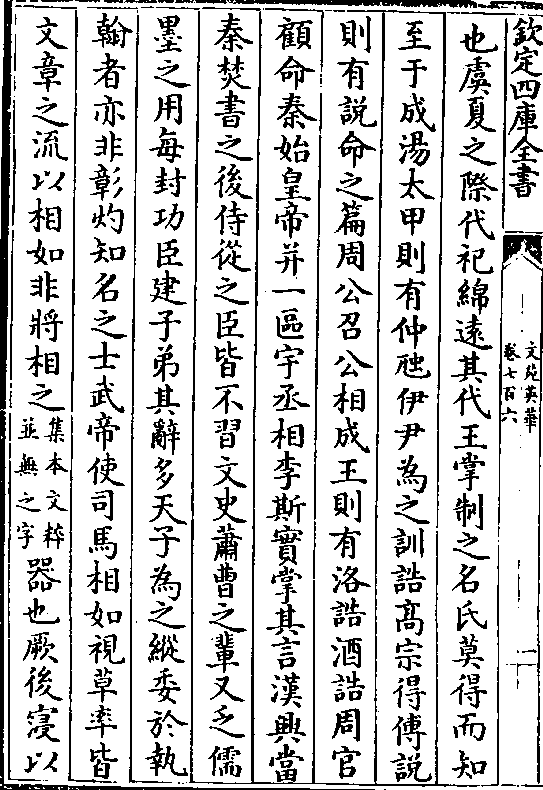 欽定四庫全書
文苑英華
卷七百六
二
也虞夏之際代祀綿遠其代王掌制之名氏莫得而知
至于成湯太甲則有仲虺伊尹為之訓誥髙宗得傅說
則有說命之篇周公召公相成王則有洛誥酒誥周官
顧命秦始皇帝并一區宇丞相李斯實掌其言漢興當
秦焚書之後侍從之臣皆不習文史蕭曹之輩又乏儒
墨之用每封功臣建子弟其辭多天子為之縱委於執
翰者亦非彰灼知名之士武帝使司馬相如視草率皆
文章之流以相如非將相之集本文粹並無之字器也厥後寖以